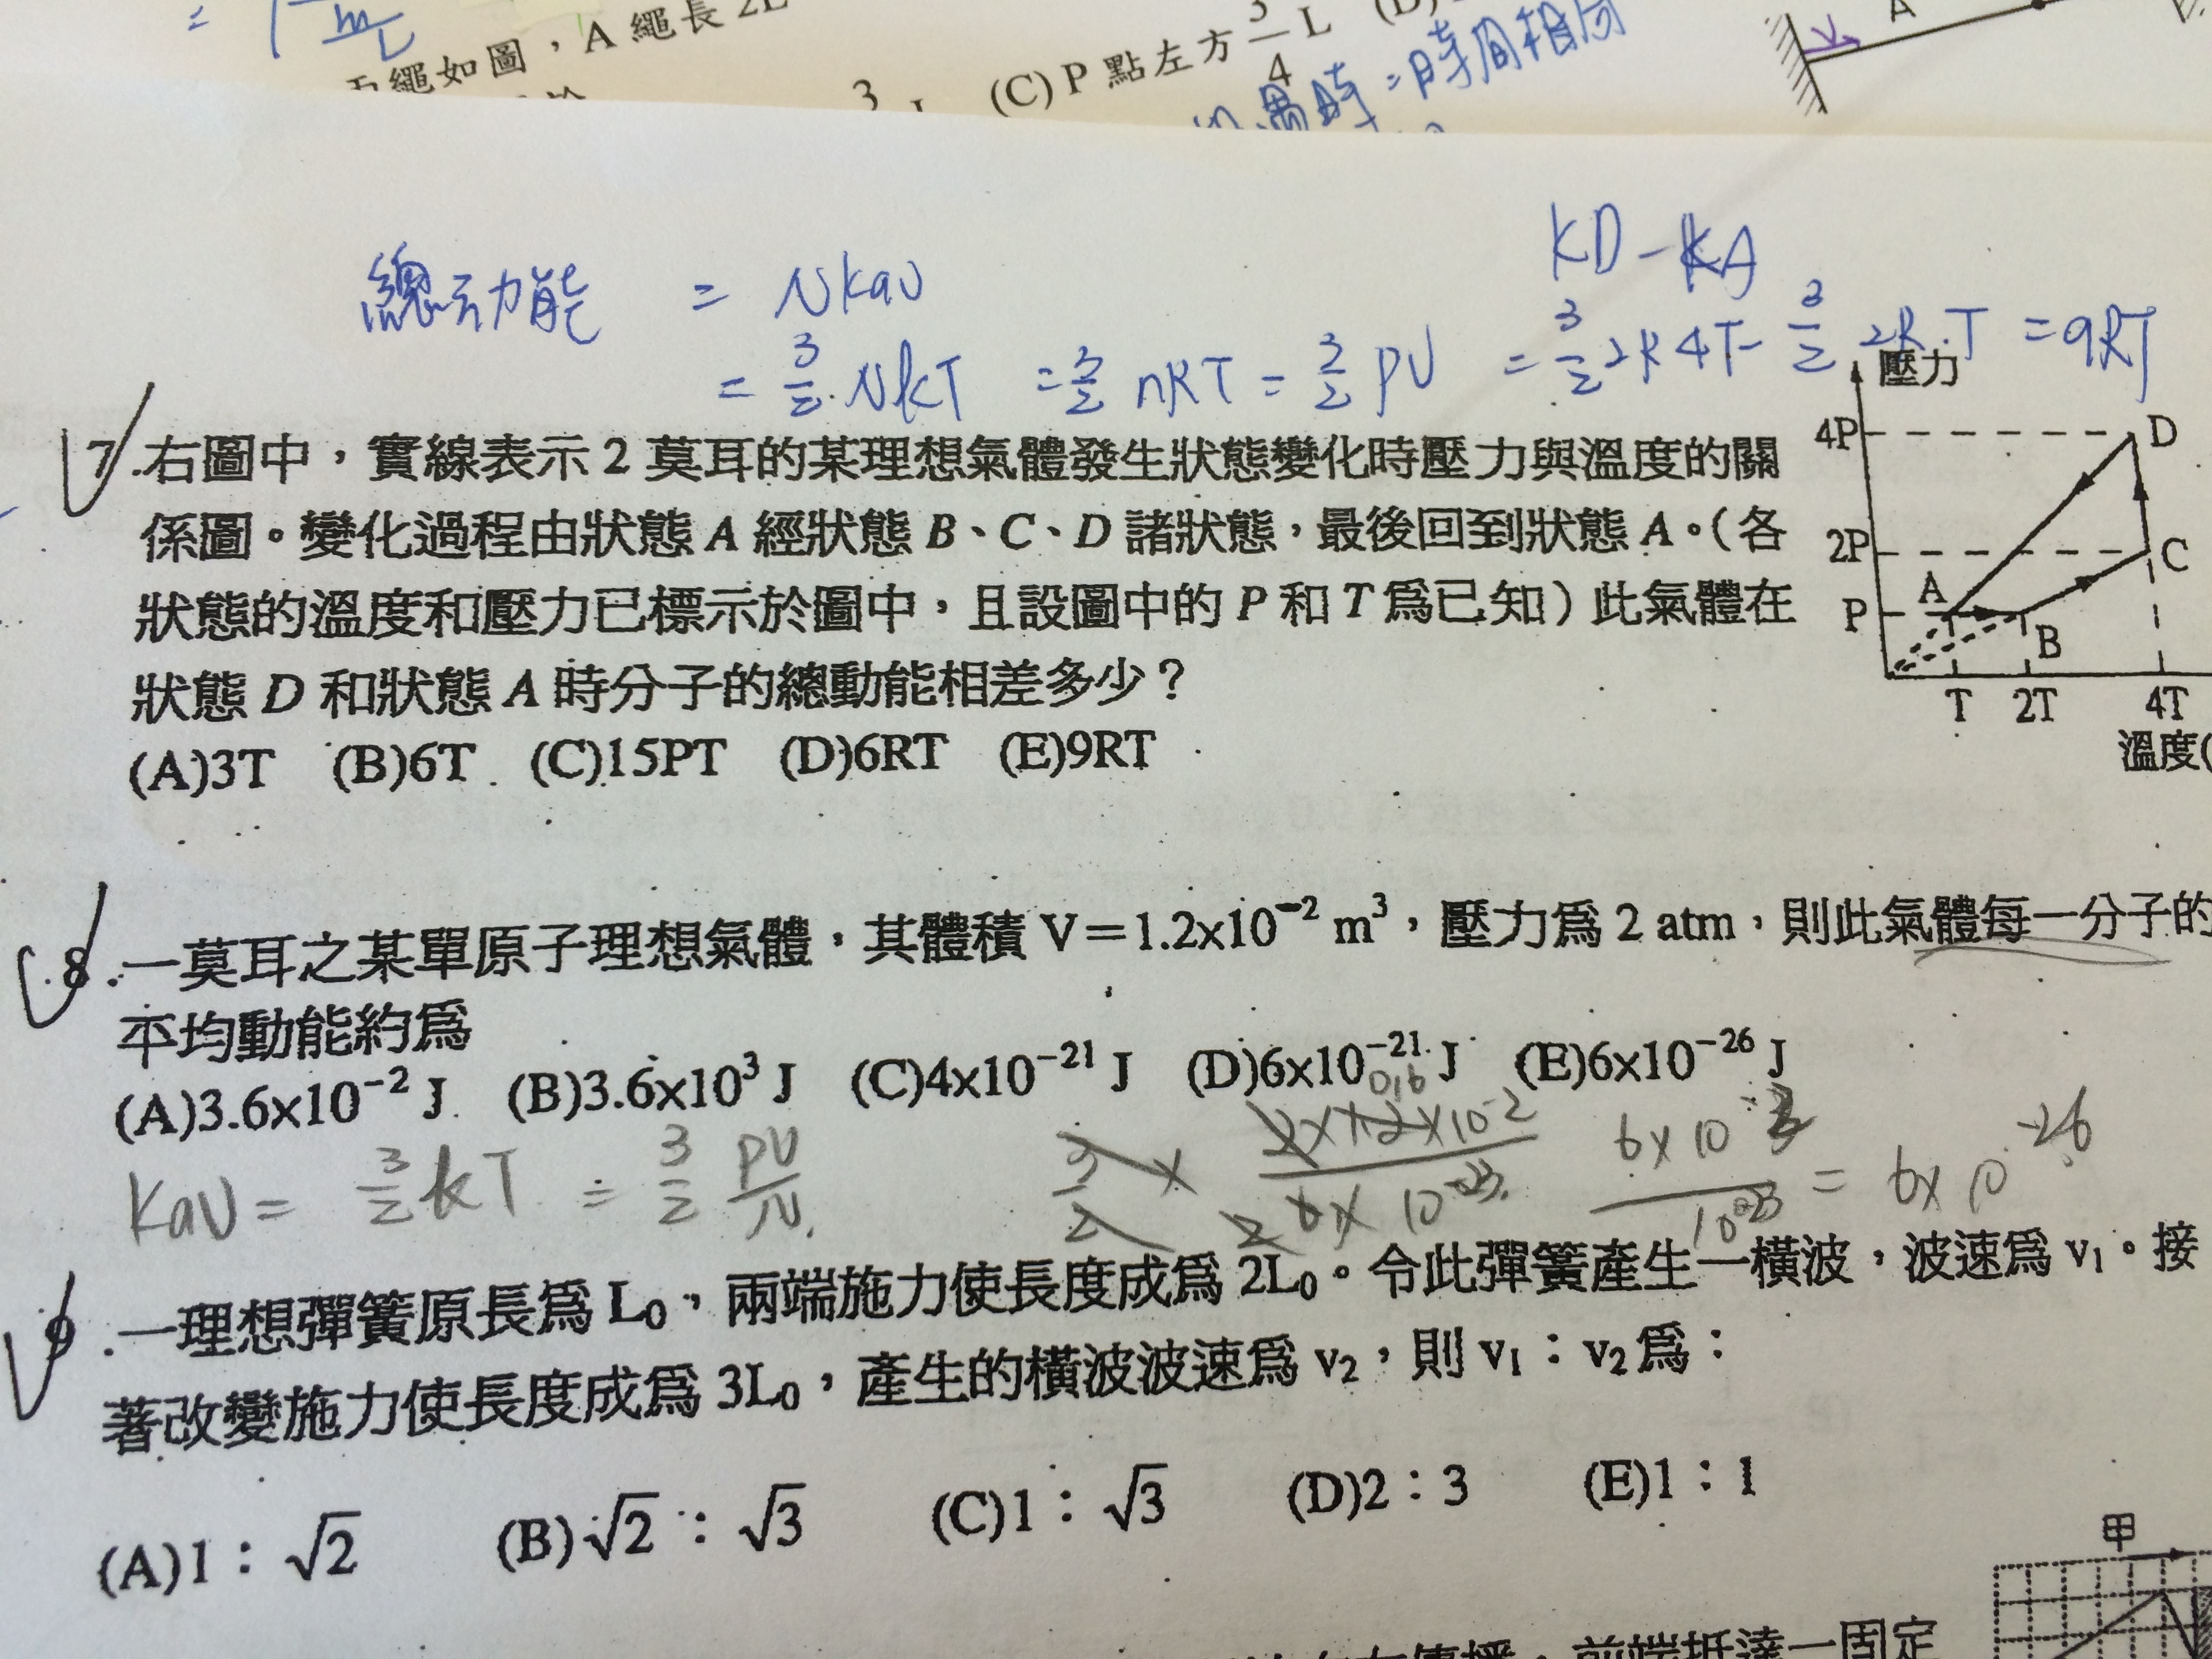 繩如圖，A 繩長 2L
(C) P 點左方 3/4 L (D)
時=時間相同
A
總動能 = Nkav
= 3/2 NkT = 3/2 nRT = 3/2 PV
KD - KA
= 3/2 2R 4T - 3/2 2R·T = 9RT
7.右圖中，實線表示 2 莫耳的某理想氣體發生狀態變化時壓力與溫度的關
係圖。變化過程由狀態 A 經狀態 B、C、D 諸狀態，最後回到狀態 A。（各
狀態的溫度和壓力已標示於圖中，且設圖中的 P 和 T 為已知）此氣體在
狀態 D 和狀態 A 時分子的總動能相差多少？
(A)3T (B)6T (C)15PT (D)6RT (E)9RT
壓力
4P D
2P C
P A B
T 2T 4T
溫度(
8.一莫耳之某單原子理想氣體，其體積 V＝1.2x10⁻² m³，壓力為 2 atm，則此氣體每一分子的
平均動能約為
(A)3.6x10⁻² J (B)3.6x10³ J (C)4x10⁻²¹ J (D)6x10⁻²¹ J (E)6x10⁻²⁶ J
Kav = 3/2 kT = 3/2 PV/N
= 6x10⁻²⁶
9.一理想彈簧原長為 L₀，兩端施力使長度成為 2L₀。令此彈簧產生一橫波，波速為 v₁。接
著改變施力使長度成為 3L₀，產生的橫波波速為 v₂，則 v₁：v₂為：
(A)1：√2 (B)√2：√3 (C)1：√3 (D)2：3 (E)1：1
甲
傳播，前端抵達一固定